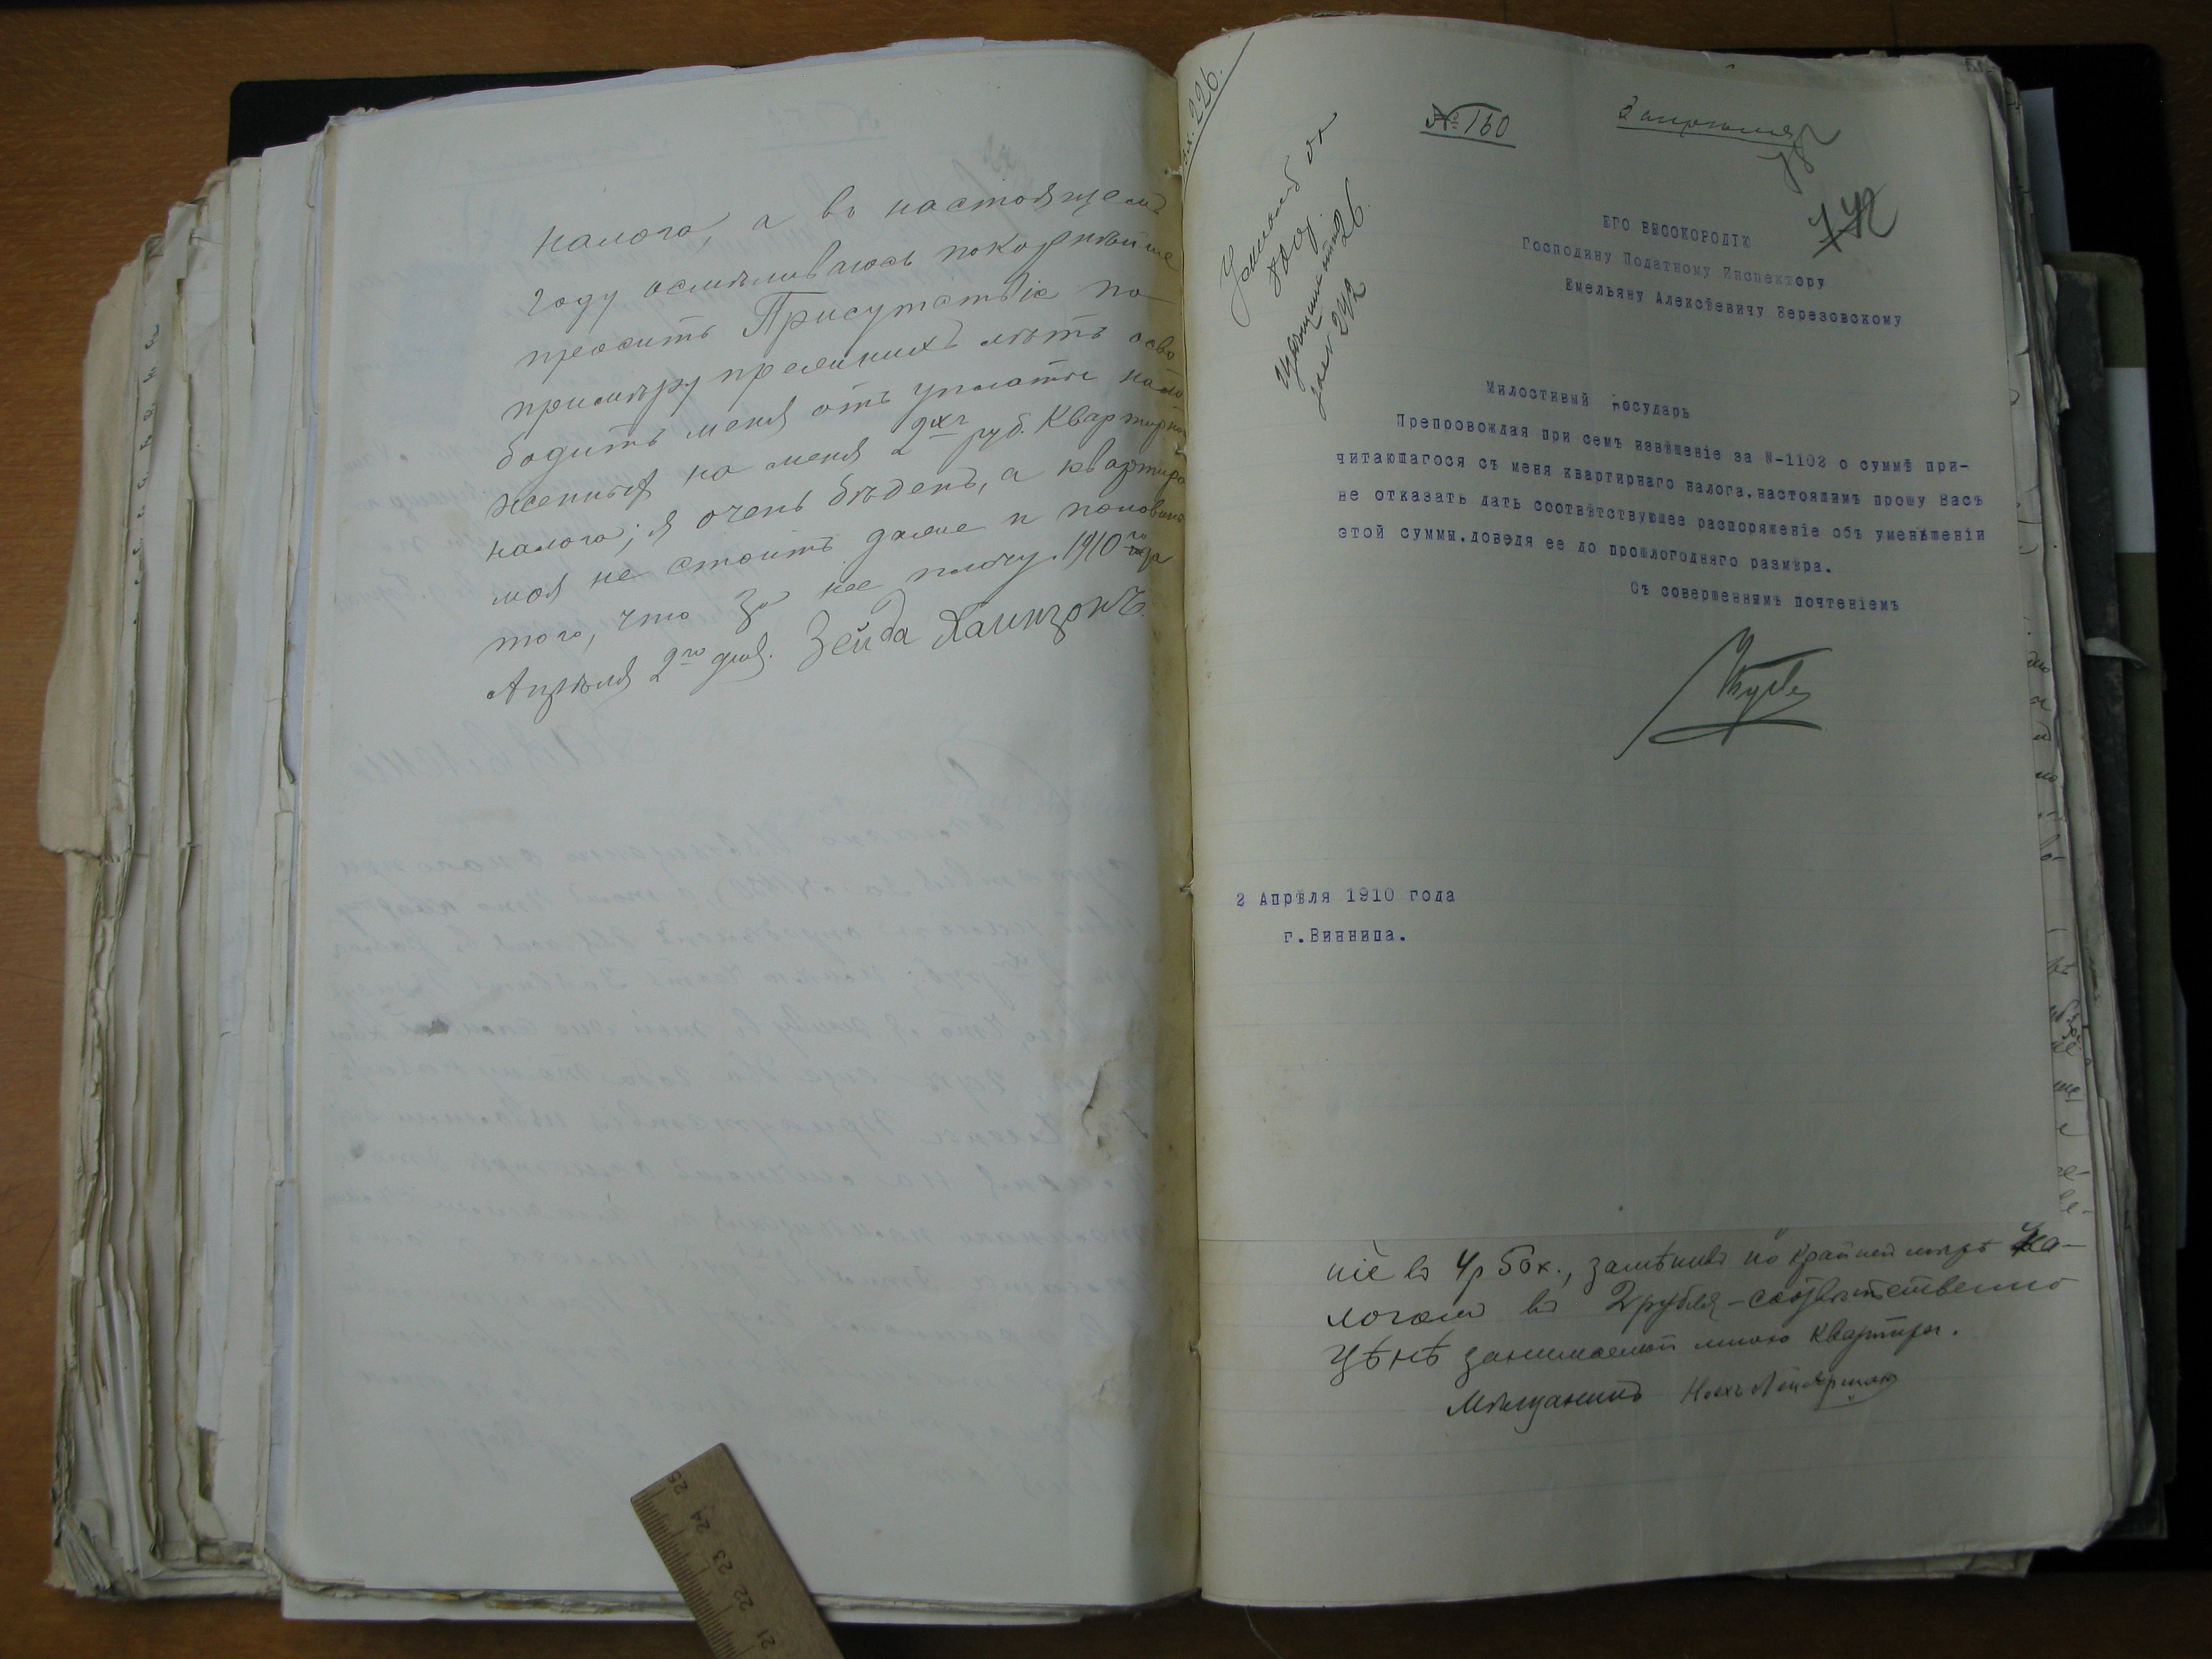 налога, а въ настоящемъ
году осмѣливаюсь покорнѣйше
просить Присутствіе по
примѣру прежнихъ лѣтъ осво
бодить меня отъ уплаты нало
женныя на меня 2хъ руб. Квартирн
налога; я очень бѣденъ, а квартира
моя не стоитъ даже и половины
того, что за нее плачу. 1910 го года
Апрѣля 2го дня. Зейда
№ 150
3 апрѣля
742
ЕГО ВЫСОКОРОДІЮ
Господину Податному Инспектору
Емельяну Алексѣевичу Березовскому
Милостивый Государь
Препровождая при семъ извѣщеніе за N-1102 о суммѣ при-
читающагося съ меня квартирнаго налога.настоящимъ прошу Васъ
не отказать дать соотвѣтствующее распоряженіе объ уменьшеніи
этой суммы.доведя ее до прошлогодняго размѣра.
Съ совершеннымъ почтеніемъ
2 Апрѣля 1910 года
г.Винница.
ніе въ 4р 50к., замѣнивъ по крайней мѣрѣ на-
логомъ въ 2 рубля - соотвѣтственно
цѣнѣ занимаемой мною квартиры.
Мѣщанинъ
226.
25 24 23 22 21